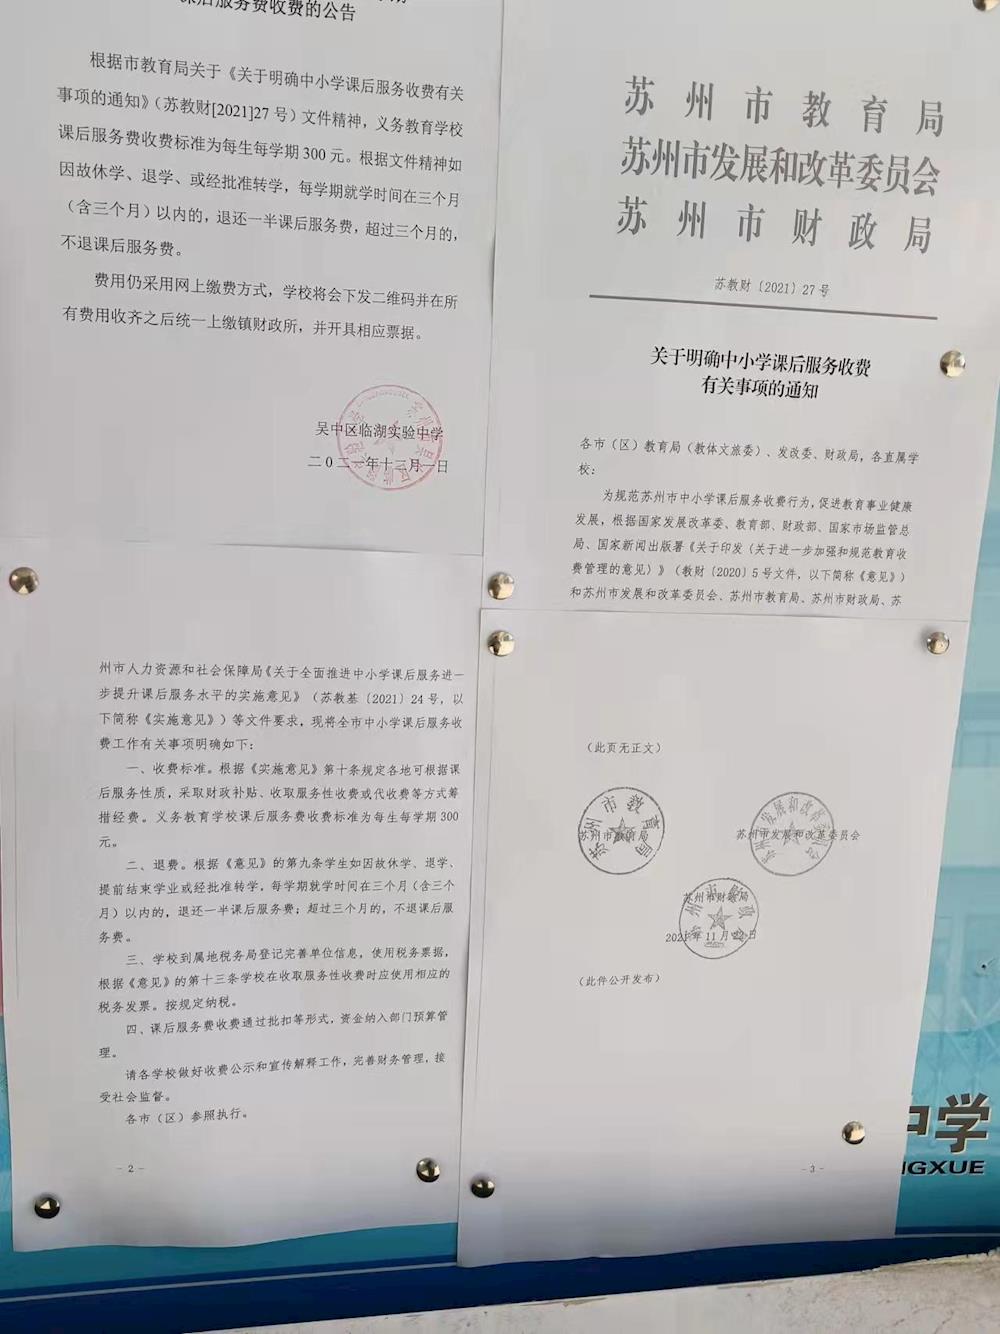 课后服务费收费的公告
根据市教育局关于《关于明确中小学课后服务收费有关
事项的通知》（苏教财[2021]27 号）文件精神，义务教育学校
课后服务费收费标准为每生每学期 300 元。根据文件精神如
因故休学、退学、或经批准转学，每学期就学时间在三个月
（含三个月）以内的，退还一半课后服务费，超过三个月的，
不退课后服务费。
费用仍采用网上缴费方式，学校将会下发二维码并在所
有费用收齐之后统一上缴镇财政所，并开具相应票据。
吴中区临湖实验中学
二0二一年十二月一日
苏州市教育局
苏州市发展和改革委员会
苏州市财政局
苏教财〔2021〕27 号
关于明确中小学课后服务收费
有关事项的通知
各市（区）教育局（教体文旅委）、发改委、财政局，各直属学
校：
为规范苏州市中小学课后服务收费行为，促进教育事业健康
发展，根据国家发展改革委、教育部、财政部、国家市场监管总
局、国家新闻出版署《关于印发〈关于进一步加强和规范教育收
费管理的意见〉》（教财〔2020〕5 号文件，以下简称《意见》）
和苏州市发展和改革委员会、苏州市教育局、苏州市财政局、苏
州市人力资源和社会保障局《关于全面推进中小学课后服务进一
步提升课后服务水平的实施意见》（苏教基〔2021〕24 号，以
下简称《实施意见》）等文件要求，现将全市中小学课后服务收
费工作有关事项明确如下：
一、收费标准。根据《实施意见》第十条规定各地可根据课
后服务性质，采取财政补贴、收取服务性收费或代收费等方式筹
措经费。义务教育学校课后服务费收费标准为每生每学期 300
元。
二、退费。根据《意见》的第九条学生如因故休学、退学、
提前结束学业或经批准转学，每学期就学时间在三个月（含三个
月）以内的，退还一半课后服务费；超过三个月的，不退课后服
务费。
三、学校到属地税务局登记完善单位信息，使用税务票据，
根据《意见》的第十三条学校在收取服务性收费时应使用相应的
税务发票。按规定纳税。
四、课后服务费收费通过批扣等形式，资金纳入部门预算管
理。
请各学校做好收费公示和宣传解释工作，完善财务管理，接
受社会监督。
各市（区）参照执行。
- 2 -
（此页无正文）
苏州市教育局
苏州市发展和改革委员会
苏州市财政局
2021年11月22日
（此件公开发布）
- 3 -
中学
NGXUE